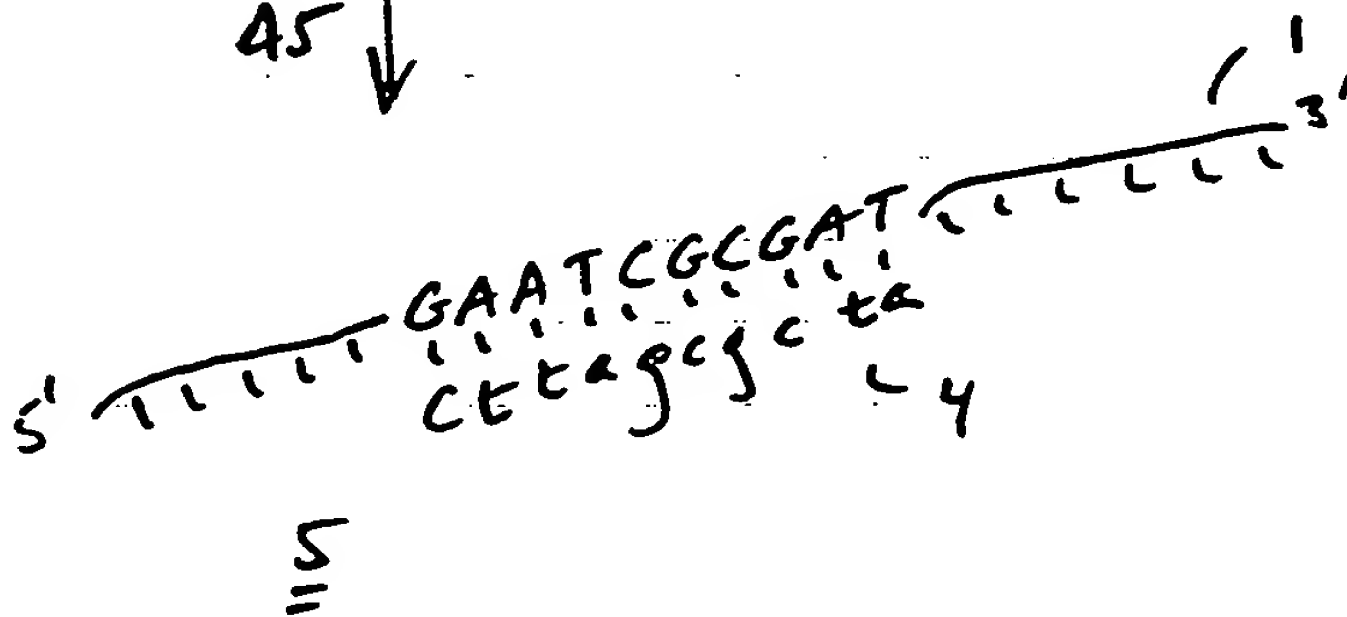 45
1
3'
GAATCGCGAT
cttagcgcta
4
5'
5